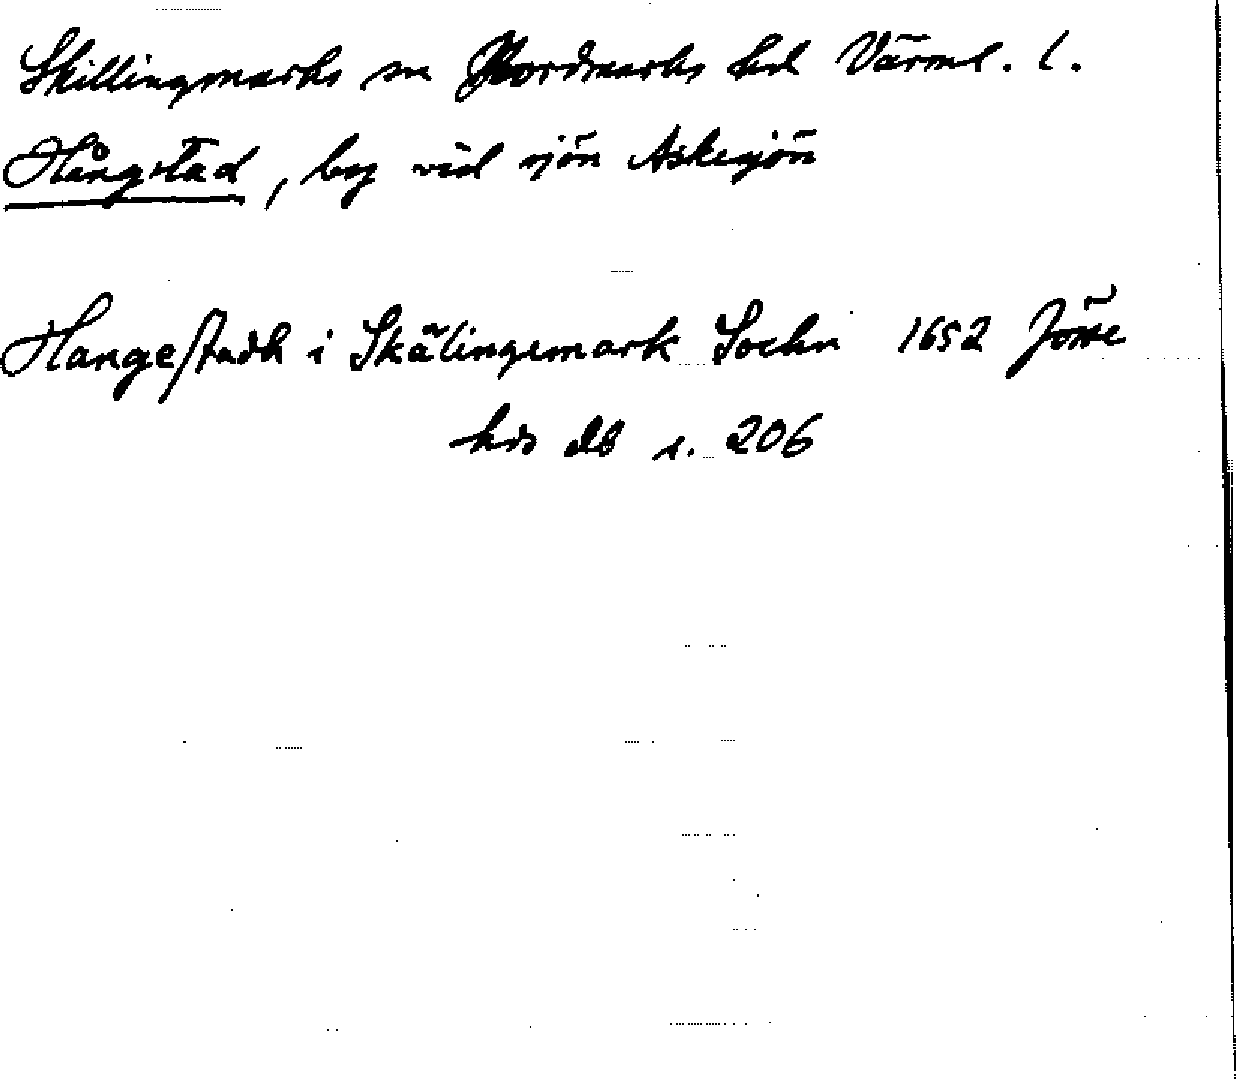 Skillingmarks sn Nordmarks hd Värml. l.
Hångstad, by vid sjön Askesjön
Hangestadh i Skälingemark Sochn 1652 Jösse
hds db s. 206